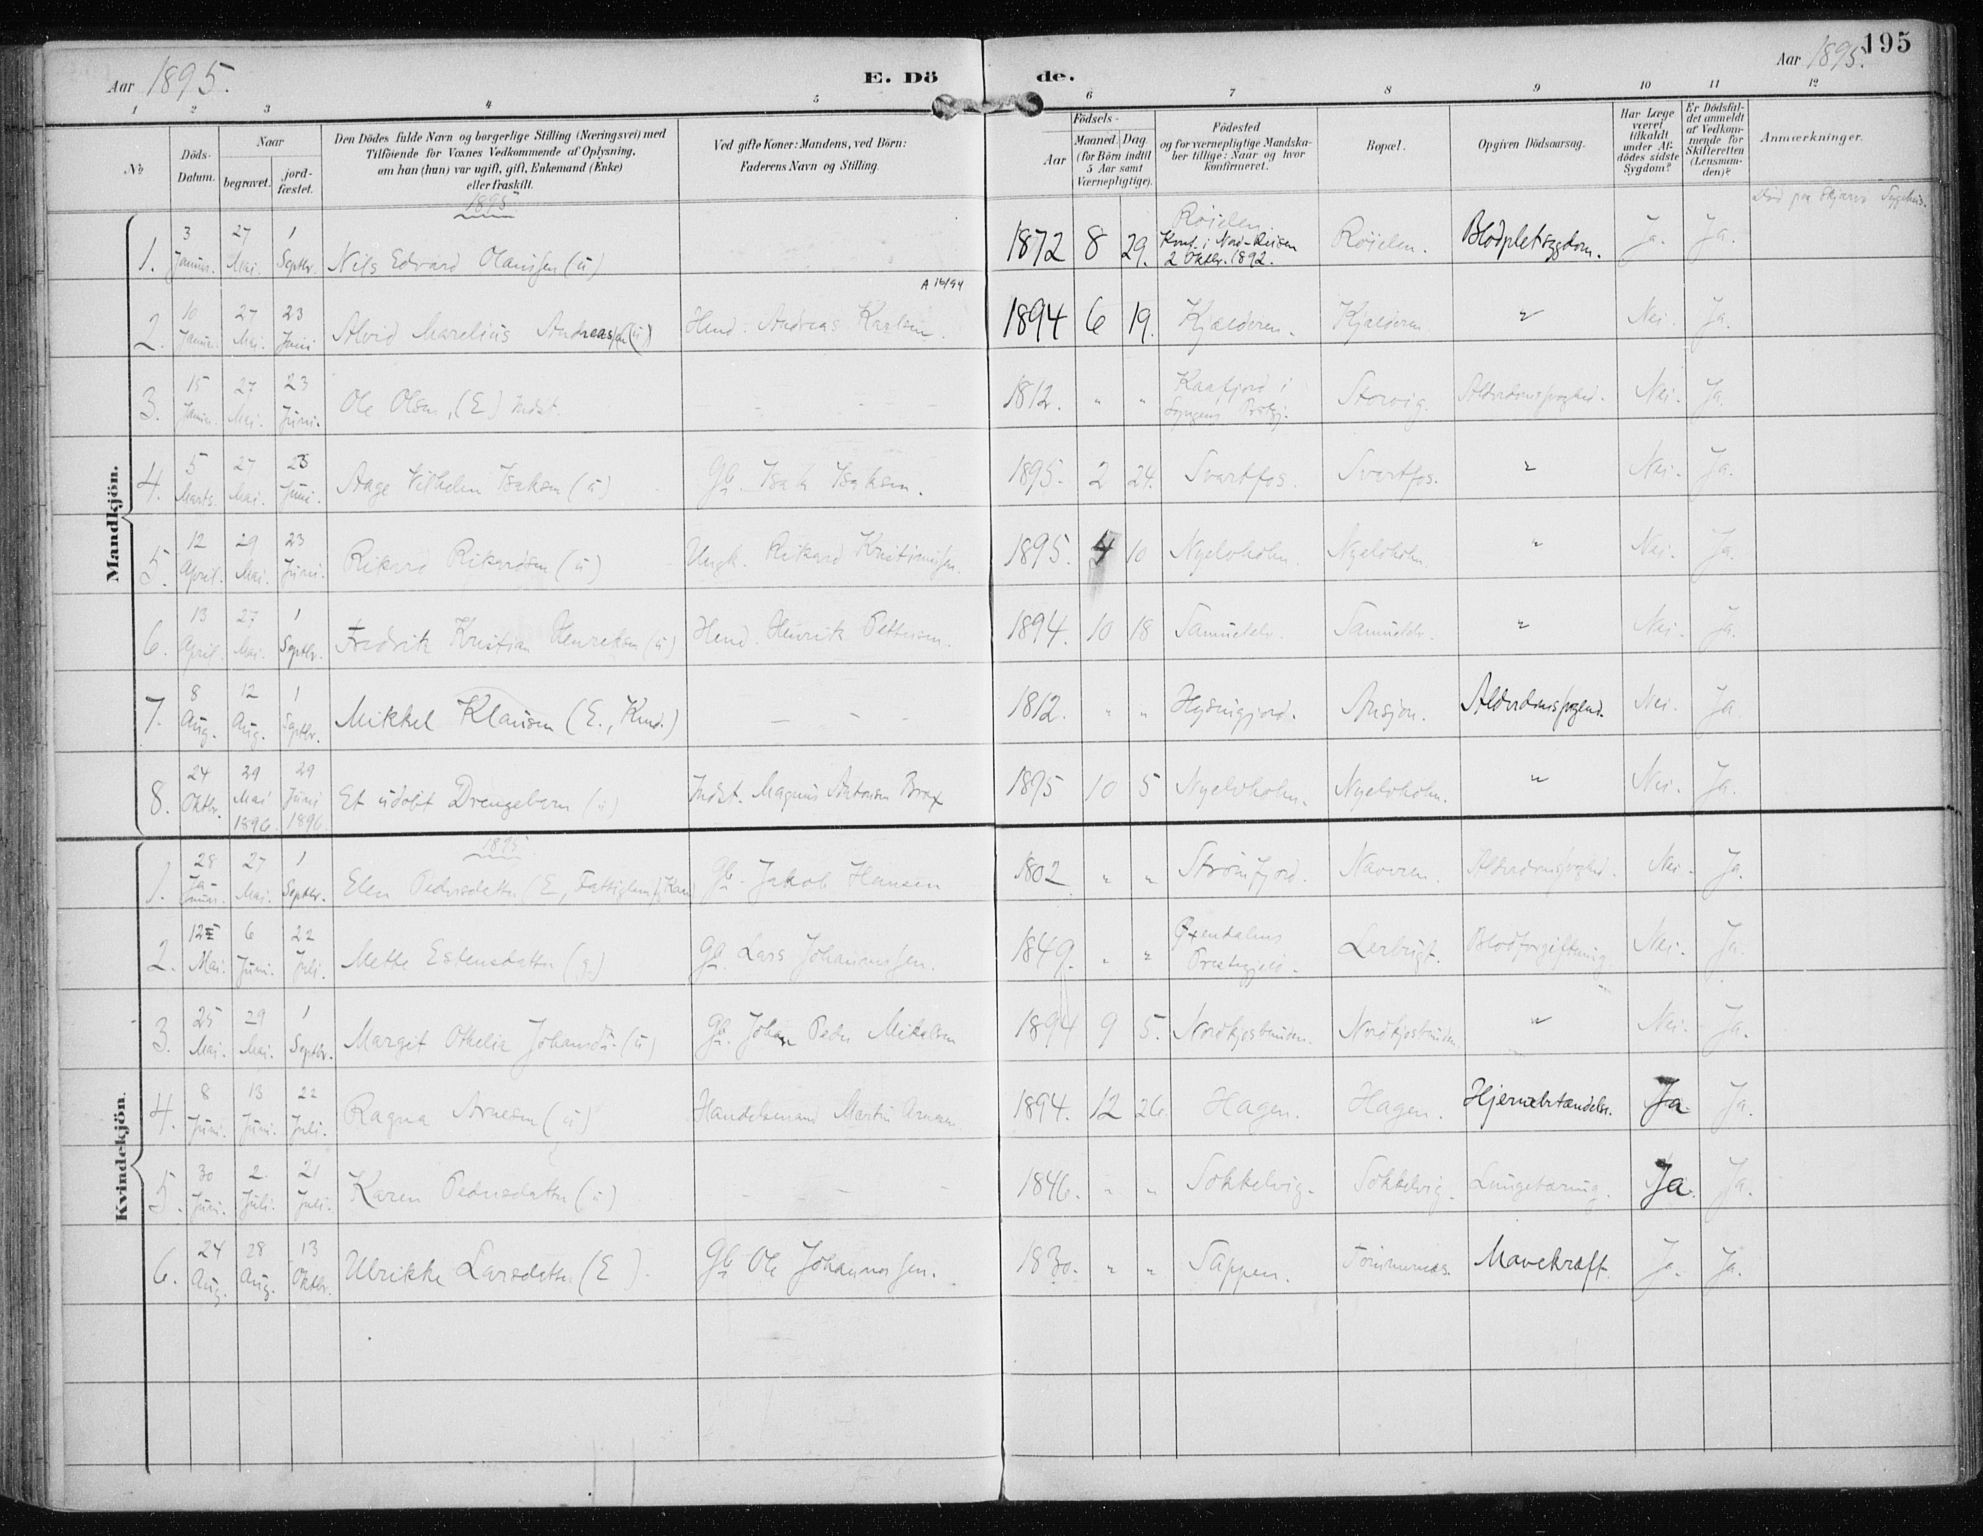 195
Aar 1895.
E. Dö de.
Aar 1895.
1 2 3 4 5 6 7 8 9 10 11 12
No
Döds-Datum.
Naar
begravet.
jord-fæstet.
Den Dödes fulde Navn og borgerlige Stilling (Næringsvei) med
Tilföiende for Voxnes Vedkommende af Oplysning,
om han (hun) var ugift, gift, Enkemand (Enke)
eller fraskilt.
Ved gifte Koner: Mandens, ved Börn:
Faderens Navn og Stilling.
Födsels-
Aar
Maaned. Dag.
(for Börn indtil
5 Aar samt
Værnepligtige).
Födested
og for værnepligtige Mandska-
ber tillige: Naar og hvor
konfirmeret.
Bopæl.
Opgiven Dödsaarsag.
Har Læge
været
tilkaldt
under Af-
dödes sidste
Sygdom?
Er Dödsfal-
det anmeldt
af Vedkom-
mende for
Skifteretten
(Lensman-
den)?
Anmærkninger.
Mandkjön.
1895
1. 3 Januar. 27 Mai. 1 Septbr. Nils Edvard Olaussen (u) 1872 8 29. Röielen. Konf. i Nord-Reisen 2 Oktbr. 1892. Röielen. Blodpletsygdom. Ja. Ja. Död paa Skjærvö Sygehus.
A 16/94
2. 10 Januar. 27 Mai. 23 Juni Alvid Marelius Andreassen (u) Hmd. Andreas Karlsen. 1894 6 19. Kjælderen. Kjælderen. " Nei. Ja.
3. 15 Januar. 27 Mai. 23 Juni. Ole Olsen, (E) Indst. - - - - 1812. " " Kaafjord i Lyngens Prstgj. Storvig. Alderdomssvaghed. Nei. Ja.
4. 5 Marts. 27 Mai. 23 Juni. Aage Vilhelm Isaksen (u) Gb. Isak Isaksen. 1895. 2 24. Svartfos. Svartfos. " Nei. Ja.
5. 12 April. 29 Mai. 23 Juni. Rikard Rikardsen (u) Ungk. Rikard Kristiansen. 1895. 4 10 Nyelvholm. Nyelvholm. " Nei. Ja.
6. 13 April. 27 Mai. 1 Septbr. Fredrik Kristian Henriksen (u) Hmd. Henrik Pettersen. 1894. 10 18 Samuelelv. Samuelelv. " Nei. Ja.
7. 8 Aug. 12 Aug. 1 Septbr. Mikkel Klausen (E., Kmd.) - - - 1812. " " Alderdomssvaghed. Nei. Ja
8. 24 Oktbr. 29 Mai 1896. 29 Juni 1896. Et udöbt Drengebarn (u) Indst. Magnus Antonsen Brox 1895 10 5 Nyelvholm. Nyelvholm. " Nei. Ja.
Kvindekjön.
1895
1. 28 Januar. 27 Mai. 1 Septbr. Elen Pedersdatter (E, Gb. Jakob Hansen 1802 " " Strömfjord. Navren. Alderdomssvaghed. Nei. Ja.
2. 12 Mai. 6 Juni. 22 Juli. Mette Estensdatter (g) Gb. Lars Johannessen. 1849. " " Öxendalens Prestegjeld. Lerbugt. Blodforgiftning. Nei. Ja.
3. 25 Mai. 29 Mai. 1 Septbr. Margit Othelie Johansdtr. (u) Gb. Johan Peder Mikalsen 1894 9 5. Nordkjosbunden. Nordkjosbunden. " Nei. Ja.
4. 8 Juni. 13 Juni. 22 Juli. Ragna Arnesen (u) Handelsmand Martin Arnesen 1894. 12 26. Hagen. Hagen. Hjernebetændelse. Ja. Ja.
5. 30 Juni. 2. Juli. 21 Juli. Karen Pedersdatter (u) - - - - 1846. " " Sökkelvig. Sökkelvig. Lungetæring. Ja. Ja.
6. 24 Aug. 28 Aug. 13 Oktbr. Ulrikke Larsdatter (E) Gb. Ole Johannessen. 1830. " " Sappen. Mavekræft. Ja. Ja.